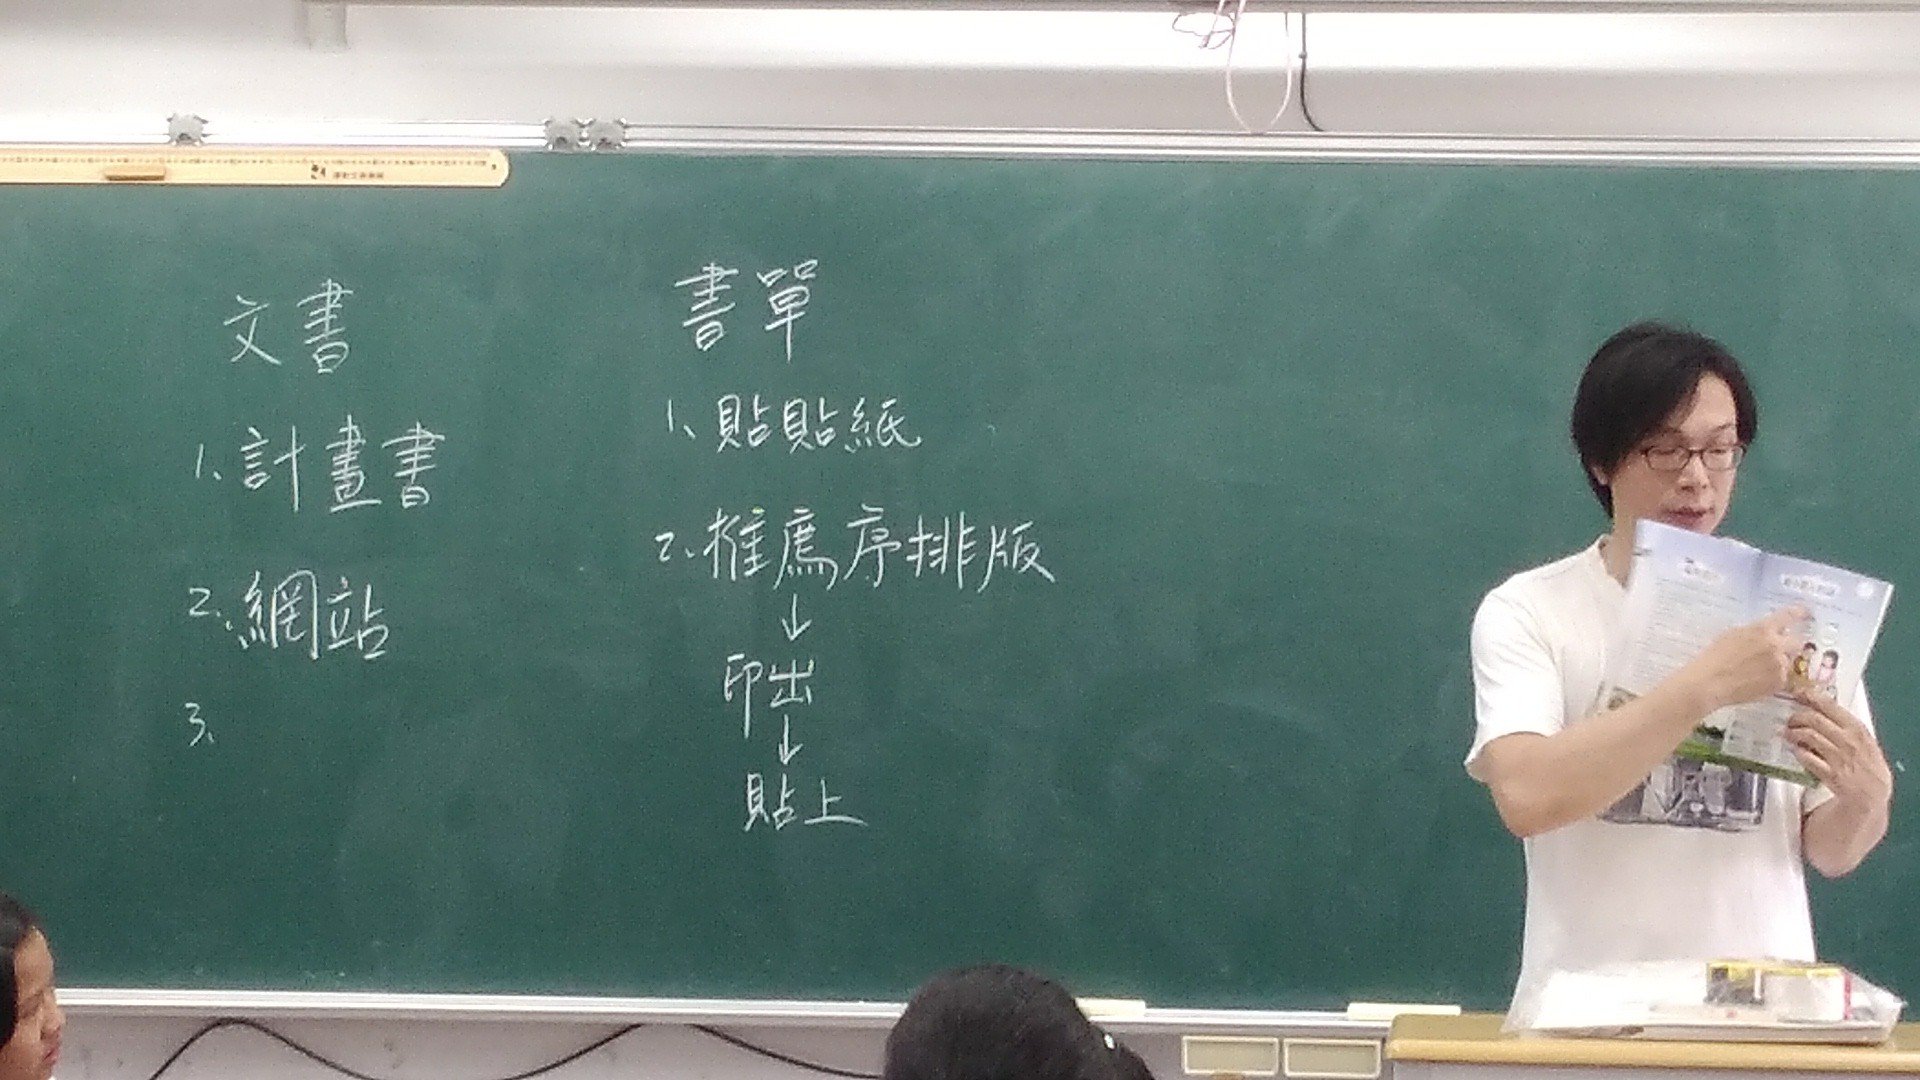 文書
1、計畫書
2、網站
3、
書單
1、貼貼紙
2、推薦序排版
↓
印出
↓
貼上